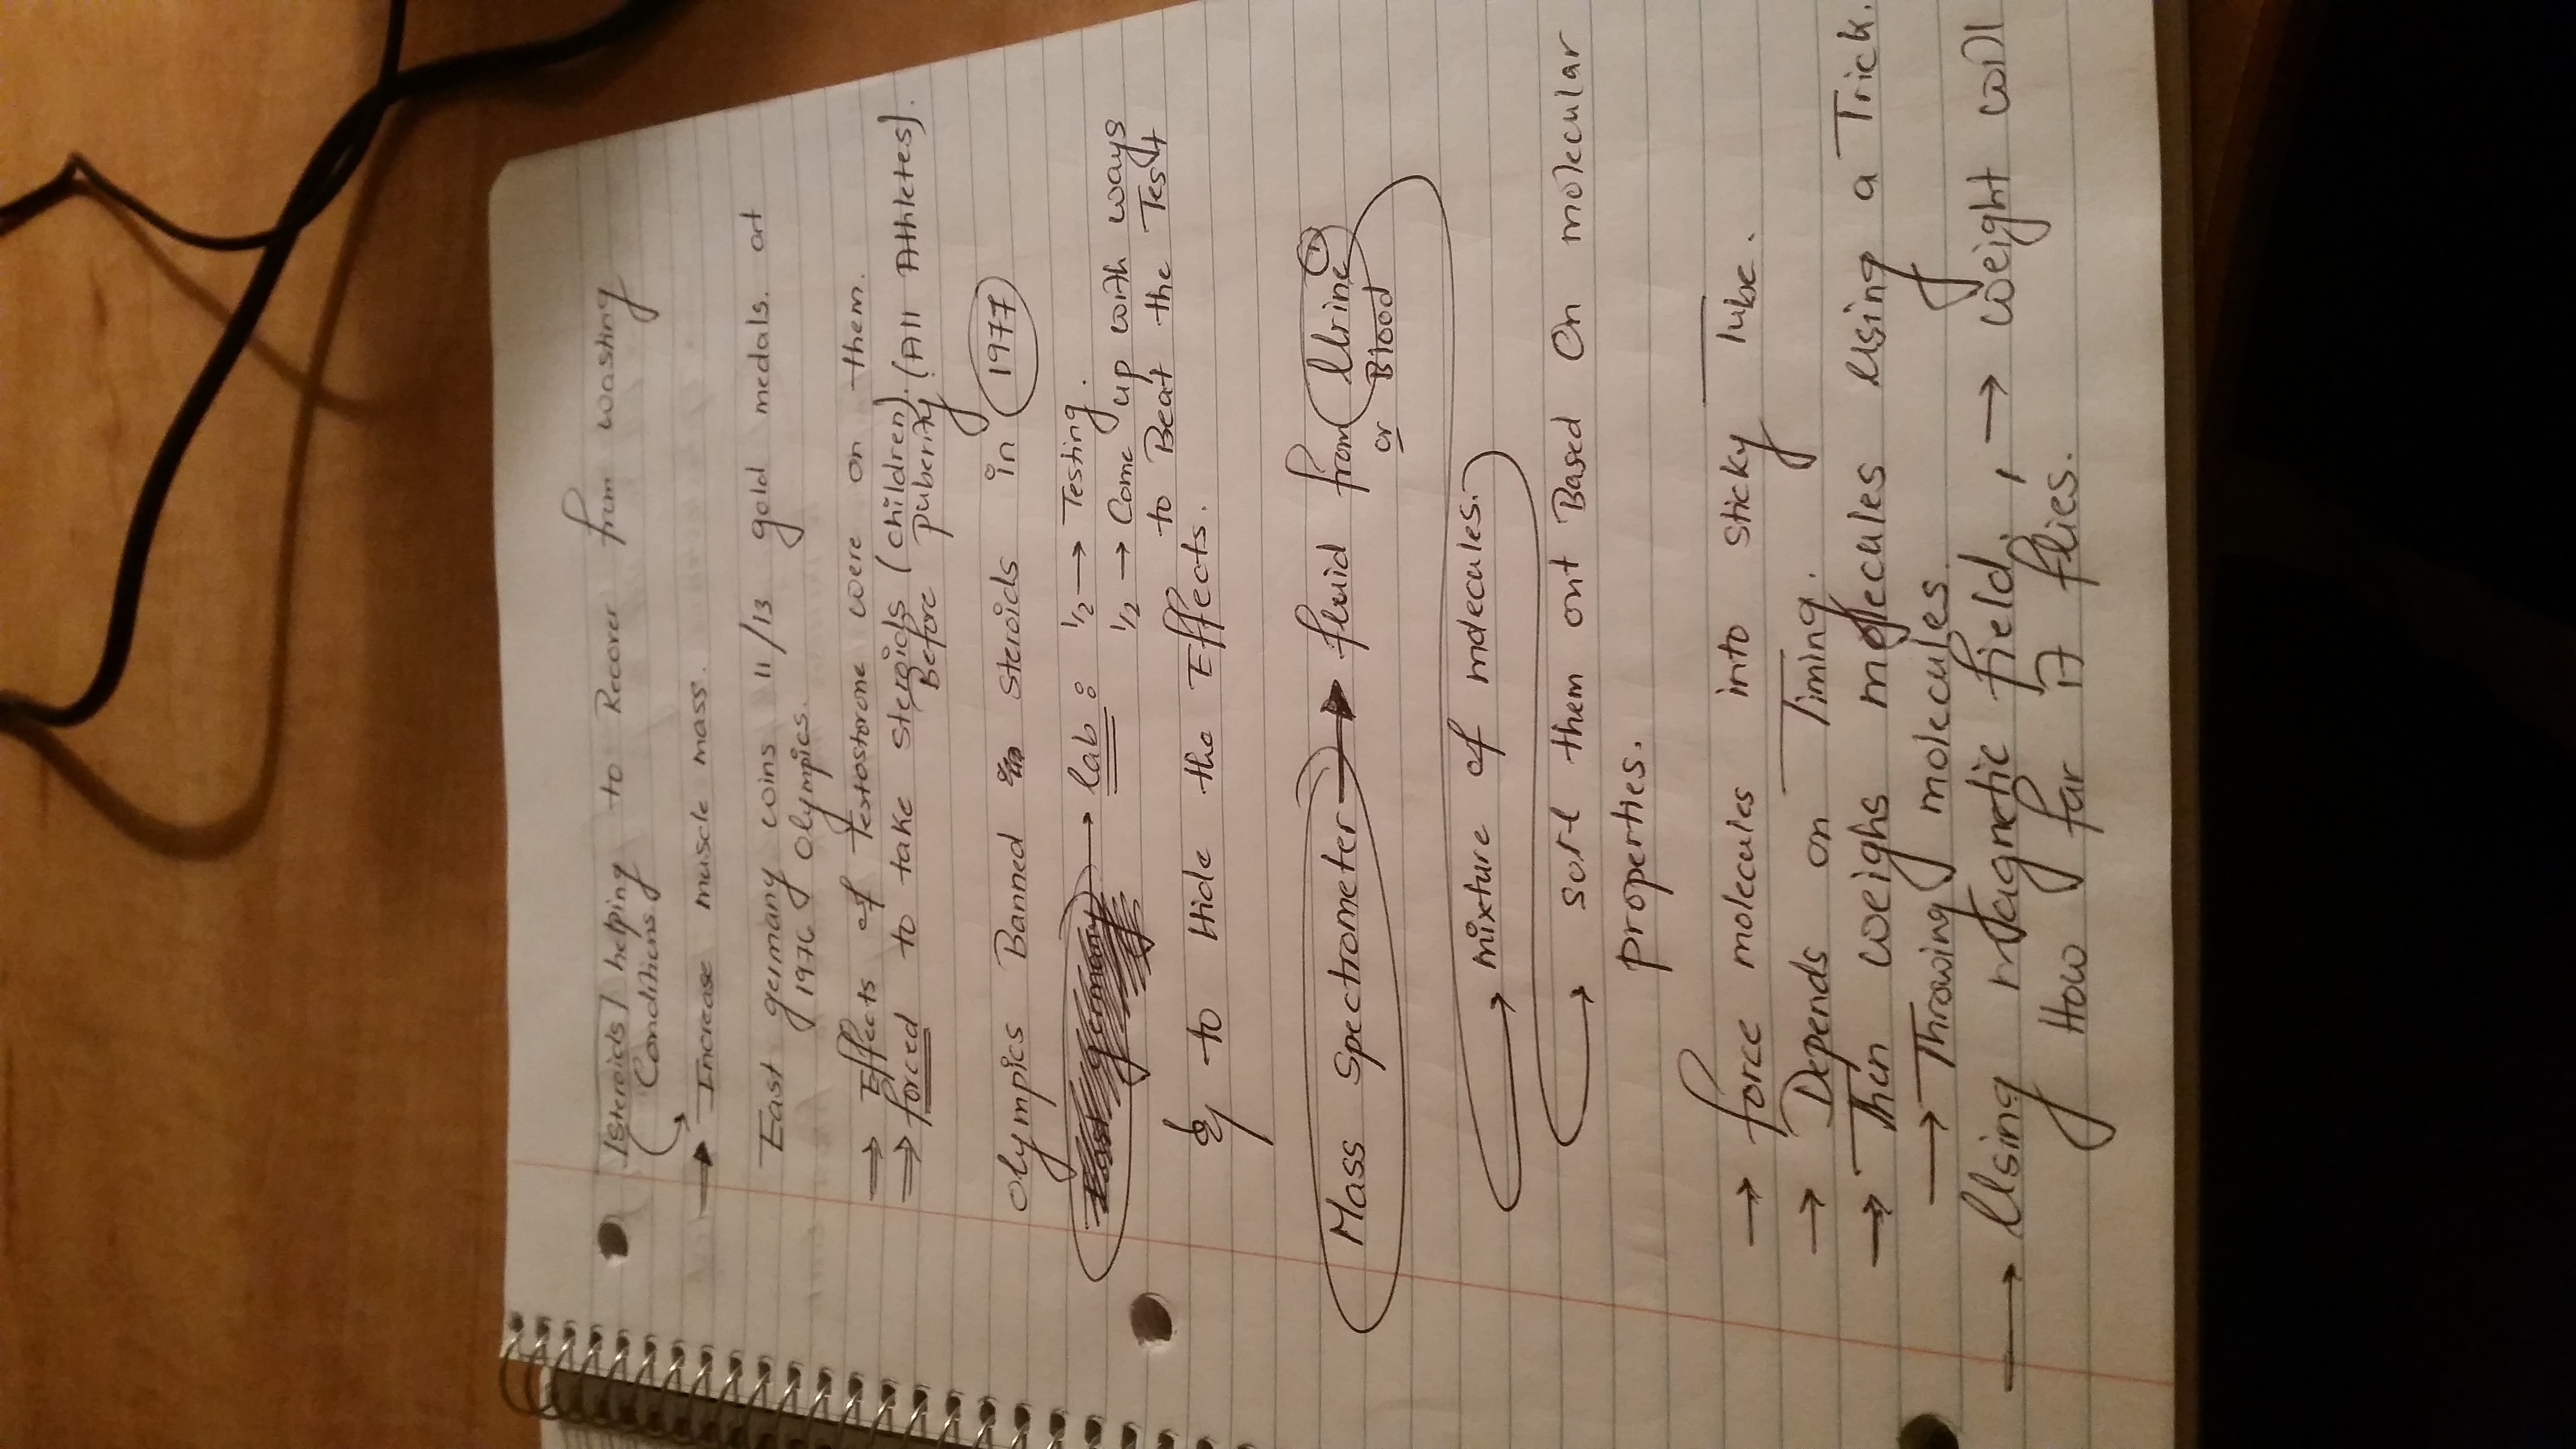 [Steroids] helping to Recover from wasting
Conditions.
→ Increase muscle mass.
East germany wins 11/13 gold medals. at
1976 Olympics.
⇒ Effects of testostorone were on them.
⇒ forced to take steroids (children). (All Athletes).
Before puberity.
Olympics Banned steroids in 1977
East germany → lab: 1/2 → Testing.
1/2 → Come up with ways
to Beat the Test
& to Hide the Effects.
Mass Spectrometer → fluid from Urine
or Blood
→ mixture of molecules.
→ sort them out Based On molecular
properties.
→ force molecules into sticky Tube.
→ Depends on Timing.
→ Then weighs molecules Using a Trick.
→ Throwing molecules
→ Using magnetic field, → weight will
How far it flies.